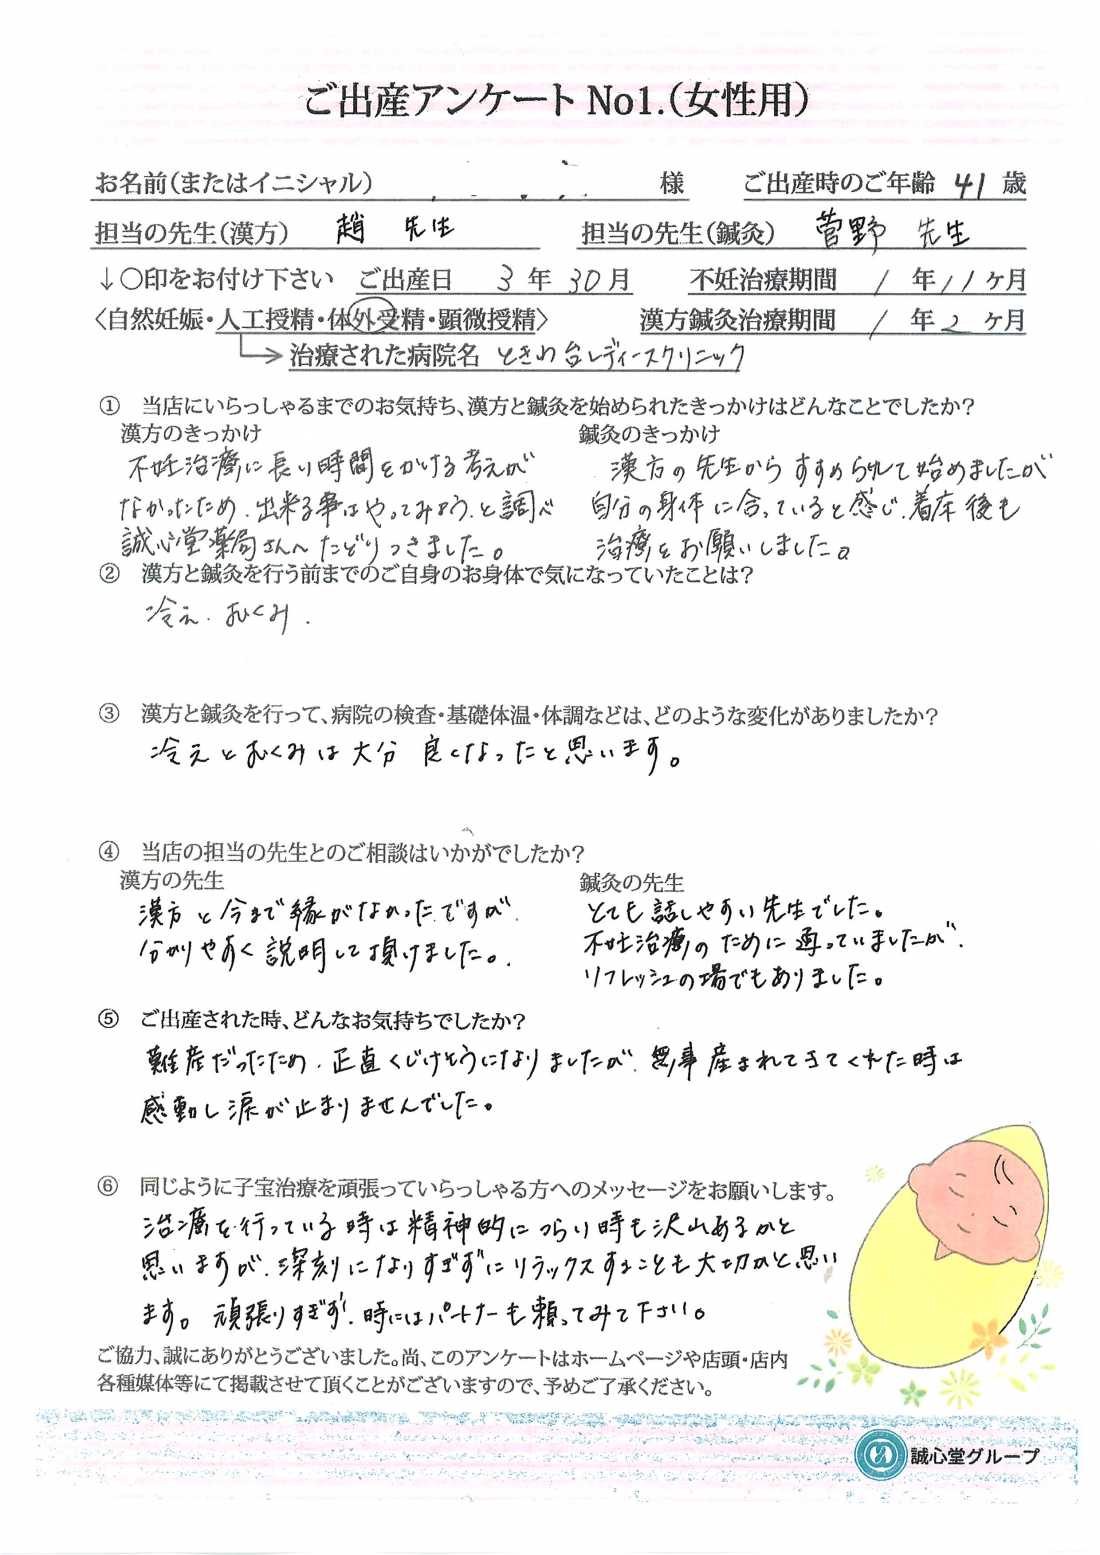 ご出産アンケート No1.(女性用)
お名前(またはイニシャル) 様 ご出産時のご年齢 41 歳
担当の先生(漢方) 趙 先生 担当の先生(鍼灸) 菅野 先生
↓○印をお付け下さい ご出産日 3 年 30 月 不妊治療期間 1 年 11 ヶ月
〈自然妊娠・人工授精・体外受精・顕微授精〉 漢方鍼灸治療期間 1 年 2 ヶ月
治療された病院名 ときわ台レディースクリニック
① 当店にいらっしゃるまでのお気持ち、漢方と鍼灸を始められたきっかけはどんなことでしたか?
漢方のきっかけ
不妊治療に長い時間をかける考えが
なかったため、出来る事はやってみよう、と調べ
誠心堂薬局さんへたどりつきました。
鍼灸のきっかけ
漢方の先生からすすめられて始めましたが
自分の身体に合っていると感じ、着床後も
治療をお願いしました。
② 漢方と鍼灸を行う前までのご自身のお身体で気になっていたことは?
冷え、むくみ、
③ 漢方と鍼灸を行って、病院の検査・基礎体温・体調などは、どのような変化がありましたか?
冷えとむくみは大分良くなったと思います。
④ 当店の担当の先生とのご相談はいかがでしたか?
漢方の先生
漢方と今まで縁がなかったですが、
分かりやすく説明して頂けました。
鍼灸の先生
とても話しやすい先生でした。
不妊治療のために通っていましたが、
リフレッシュの場でもありました。
⑤ ご出産された時、どんなお気持ちでしたか?
難産だったため、正直くじけそうになりましたが、無事産まれてきてくれた時は
感動し涙が止まりませんでした。
⑥ 同じように子宝治療を頑張っていらっしゃる方へのメッセージをお願いします。
治療を行っている時は精神的につらい時も沢山あるかと
思いますが、深刻になりすぎずにリラックスすることも大切かと思い
ます。頑張りすぎず、時にはパートナーも頼ってみて下さい。
ご協力、誠にありがとうございました。尚、このアンケートはホームページや店頭・店内
各種媒体等にて掲載させて頂くことがございますので、予めご了承ください。
誠心堂グループ